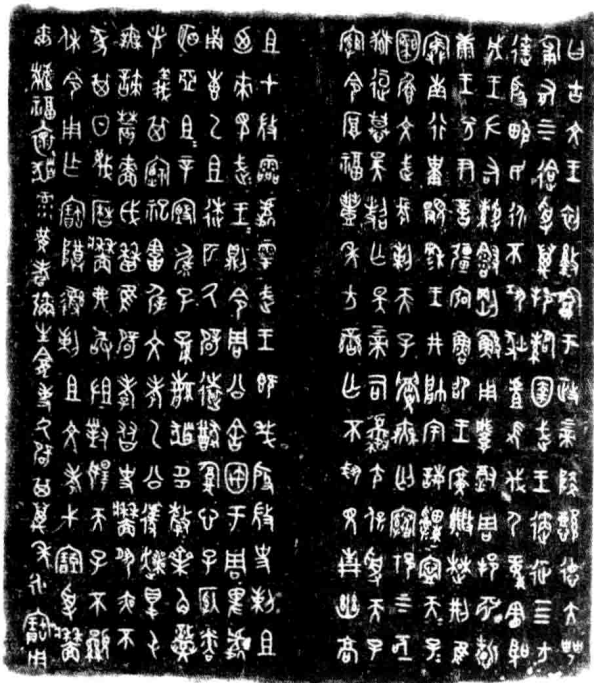 曰古文王初龢于政上帝降懿德大甹
匍有上下迨受萬邦圉武王遹征四方
達殷畯民永不巩狄虘伐尸童憲聖
成王左右剛鯀用肇周邦淵哲
康王兮尹億疆宖魯卲王廣楚荊隹
寏南行祗穆王井帥宇誨寧天子
天子文武長剌天子眉無匄祁上下亟
逗慕昊照亡斁上帝司夒尢保受天子
綰令厚福豐年方蠻亡不見青幽高
且才微霝處雩武王既殷微史剌且
乃來見武王武王則令周公舍于周卑處甬
叀乙且逨匹氒辟遠猷腹心子粦
明亞且且辛毓子孫繁多孷齊角熾
光義其禋祀害屖文考乙公遽爽得
屯無諫農穡戉曆隹辟孝友史牆夙夜不
㒸其日蔑曆牆弗敢沮對揚天子不顯
休令用乍寶尊彝剌且文考弋受牆
爾福懷彔黃耇彌生龕事氒辟其萬年永寶用